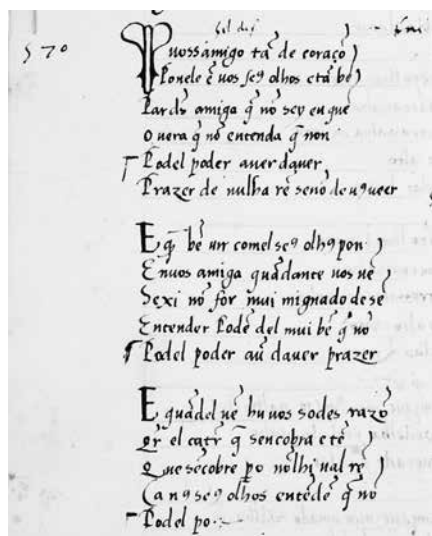 570
O uossamigo tã de coraçõ
Ponele ẽ uos seꝯ olhos e tã bẽ
Par ds̃ amiga q̃ nõ sey eu quẽ
O uera q̃ nõ entenda q̃ non
Podel poder auer dauer
Prazer de nulha rẽ senõ de uꝯ ueer
E q̃ bẽ uir comel seꝯ olhꝯ pon
En uos amiga quãdante uos uẽ
Sexi nõ for mui mignado de sẽ
Entender podẽ del mui bẽ q̃ nõ
Podel poder au̾ dauer prazer
E quãdel uẽ hu uos sodes razõ
Qr̃ el catar̃ q̃ sencobra e tẽ
Que sẽcobre po nõlhi ual rẽ
Ca nꝯ seꝯ olhos entẽdẽ q̃ nõ
Podel po